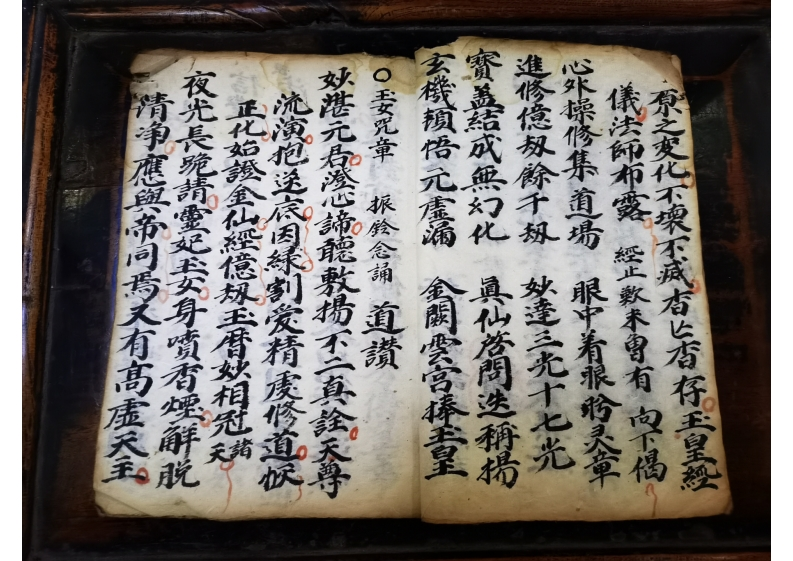 原之変化不壞不滅杳匕杳存玉皇經
儀法師布露 經止歎未曾有 向下偈
心外操修集道場 眼中着眼盻灵章
進修億刼餘千刼 妙達三光十七光
寳盖結成無幻化 眞仙啓問迭稱揚
玄機頓悟元虛漏 金闕雲宮捧玉皇
○玉女咒章 振鈴念誦 道讃
妙湛元君澄心諦聽敷揚不二真詮天尊
流演抱送底因緣割愛精虔修道
正化始證金仙經億刼玉曆妙相冠諸天
夜光長跪請靈妃玉女身噴香煙解脱
清净應與帝同焉又有高虛天王